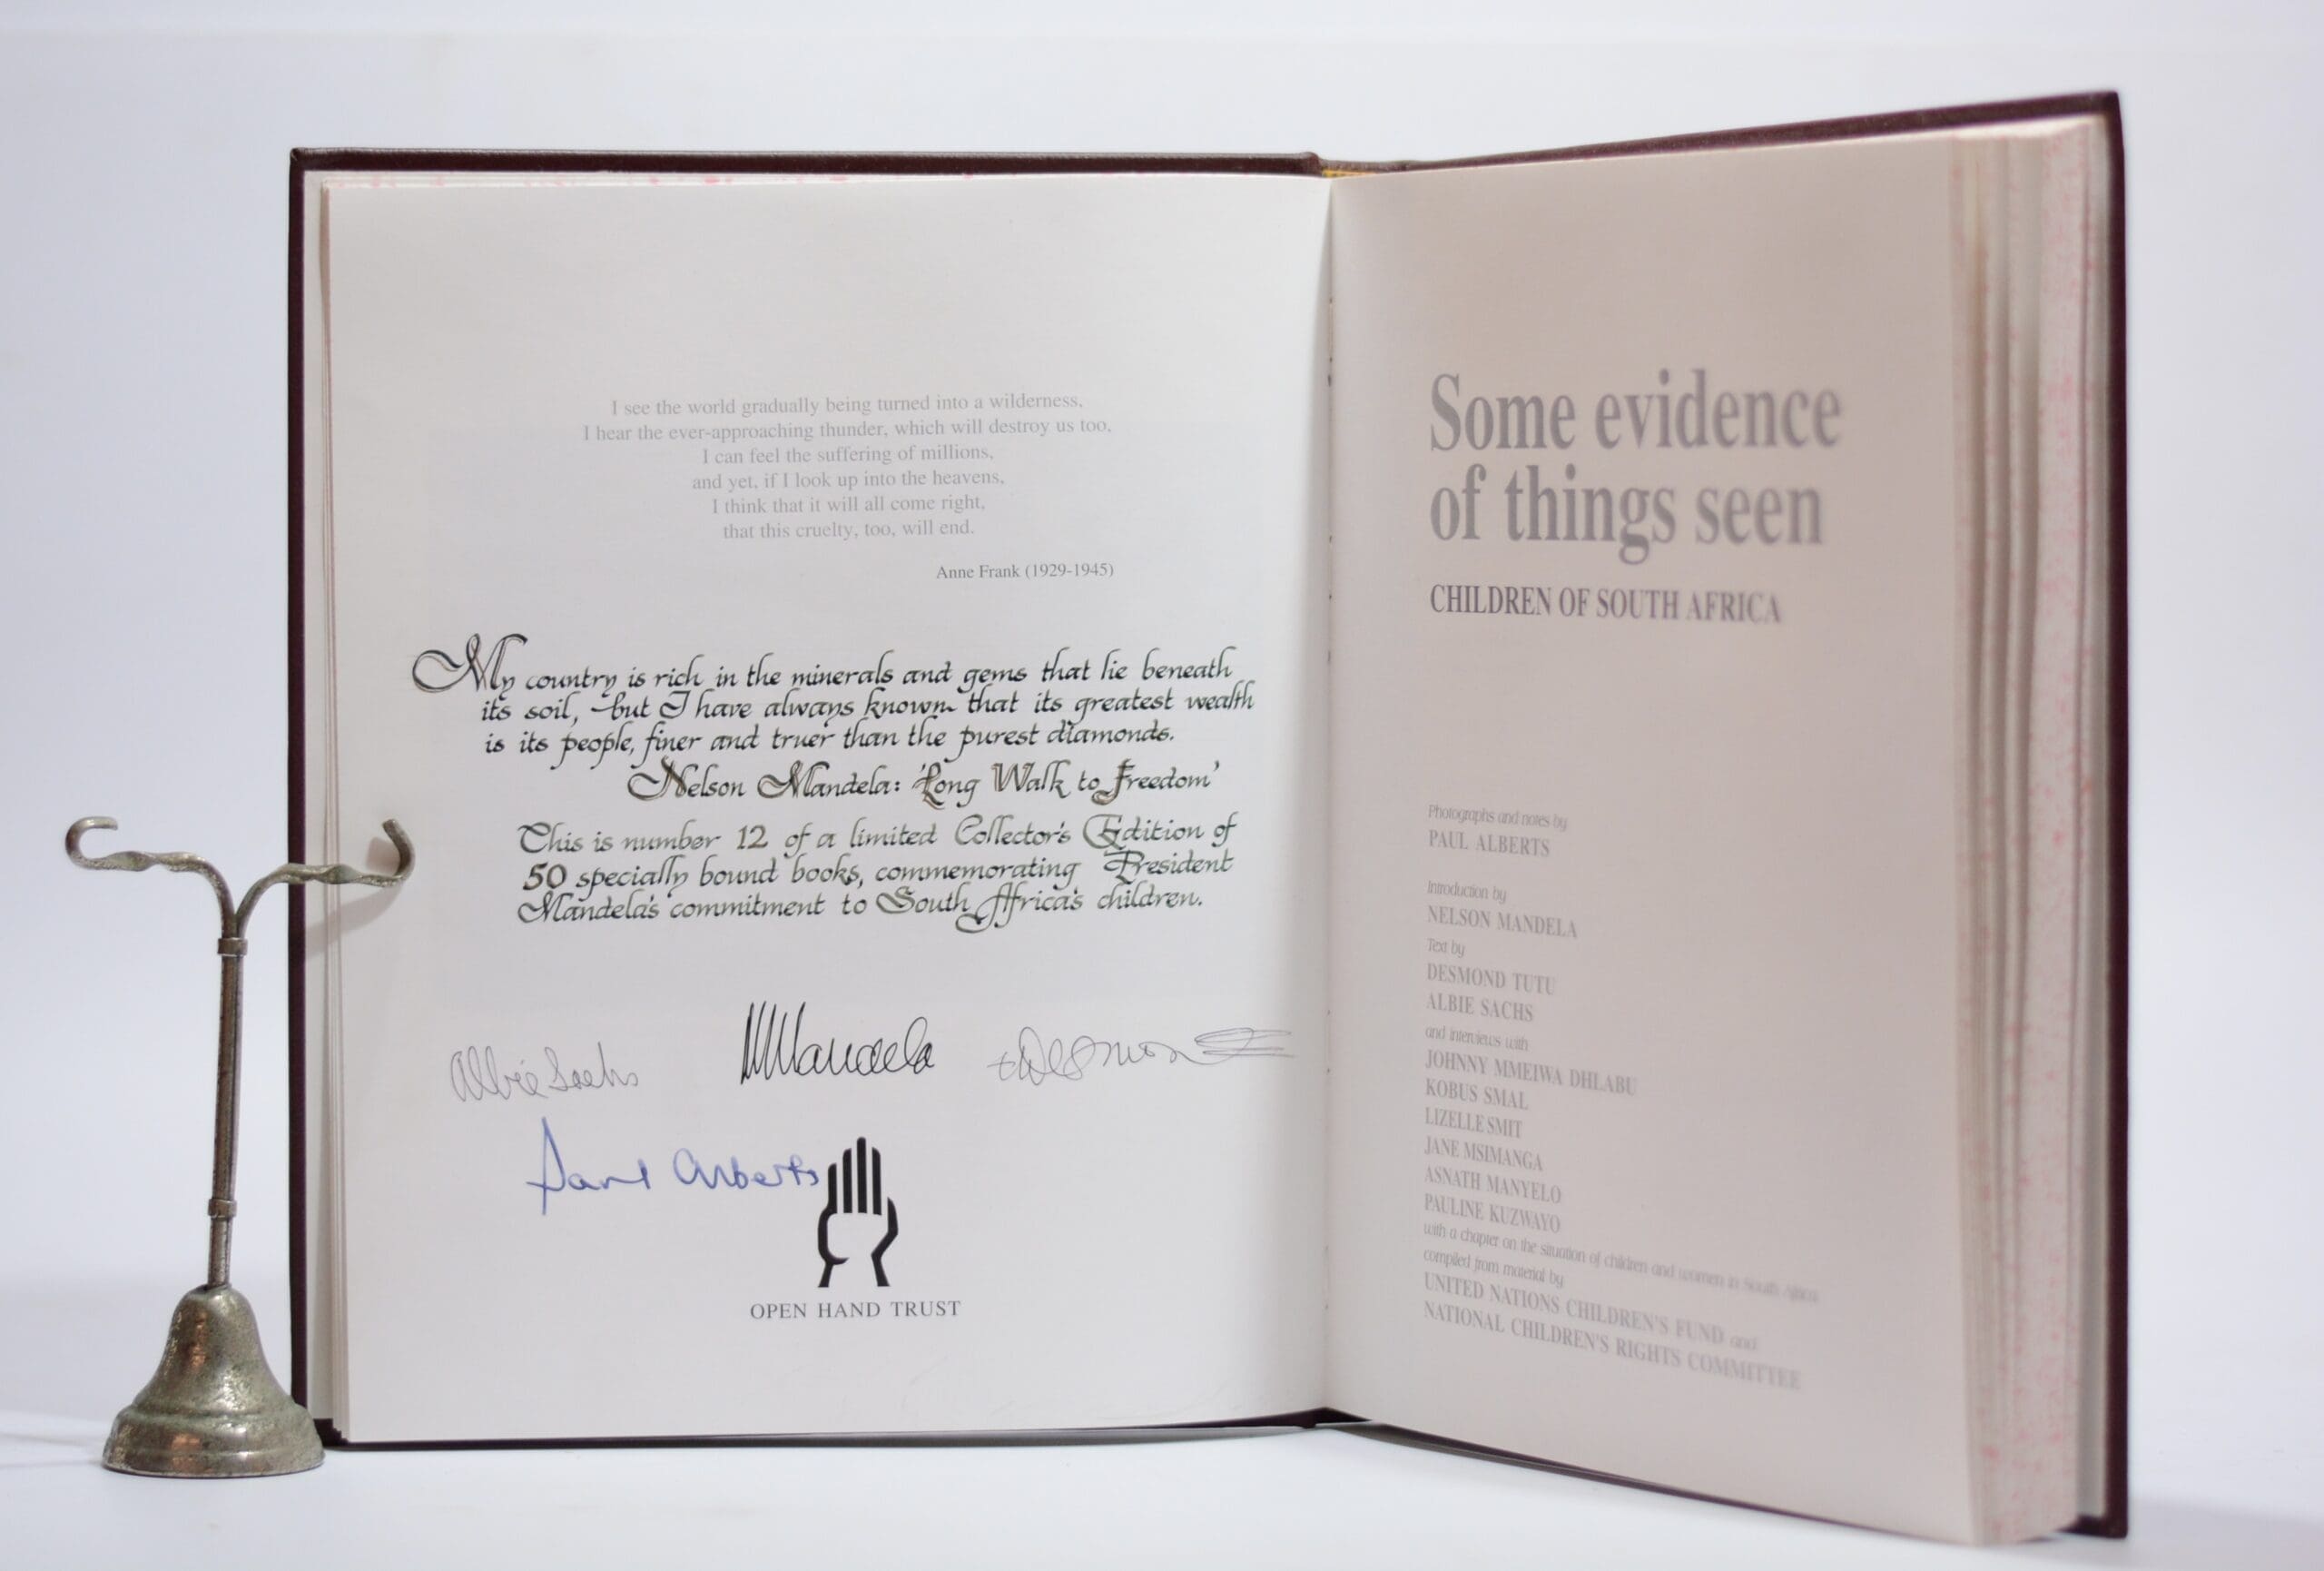 I see the world gradually being turned into a wilderness,
I hear the ever-approaching thunder, which will destroy us too,
I can feel the suffering of millions,
and yet, if I look up into the heavens,
I think that it will all come right,
that this cruelty, too, will end.
Anne Frank (1929-1945)
My country is rich in the minerals and gems that lie beneath
its soil, but I have always known that its greatest wealth
is its people, finer and truer than the purest diamonds.
Nelson Mandela: 'Long Walk to Freedom'
This is number 12 of a limited Collector's Edition of
50 specially bound books, commemorating President
Mandela's commitment to South Africa's children.
Albie Sachs
NMandela
+Desmond
Paul Alberts
OPEN HAND TRUST
Some evidence
of things seen
CHILDREN OF SOUTH AFRICA
Photographs and notes by
PAUL ALBERTS
Introduction by
NELSON MANDELA
Text by
DESMOND TUTU
ALBIE SACHS
and interviews with
JOHNNY MMEIWA DHLABU
KOBUS SMAL
LIZELLE SMIT
JANE MSIMANGA
ASNATH MANYELO
PAULINE KUZWAYO
with a chapter on the situation of children and women in South Africa
compiled from material by
UNITED NATIONS CHILDREN'S FUND and
NATIONAL CHILDREN'S RIGHTS COMMITTEE